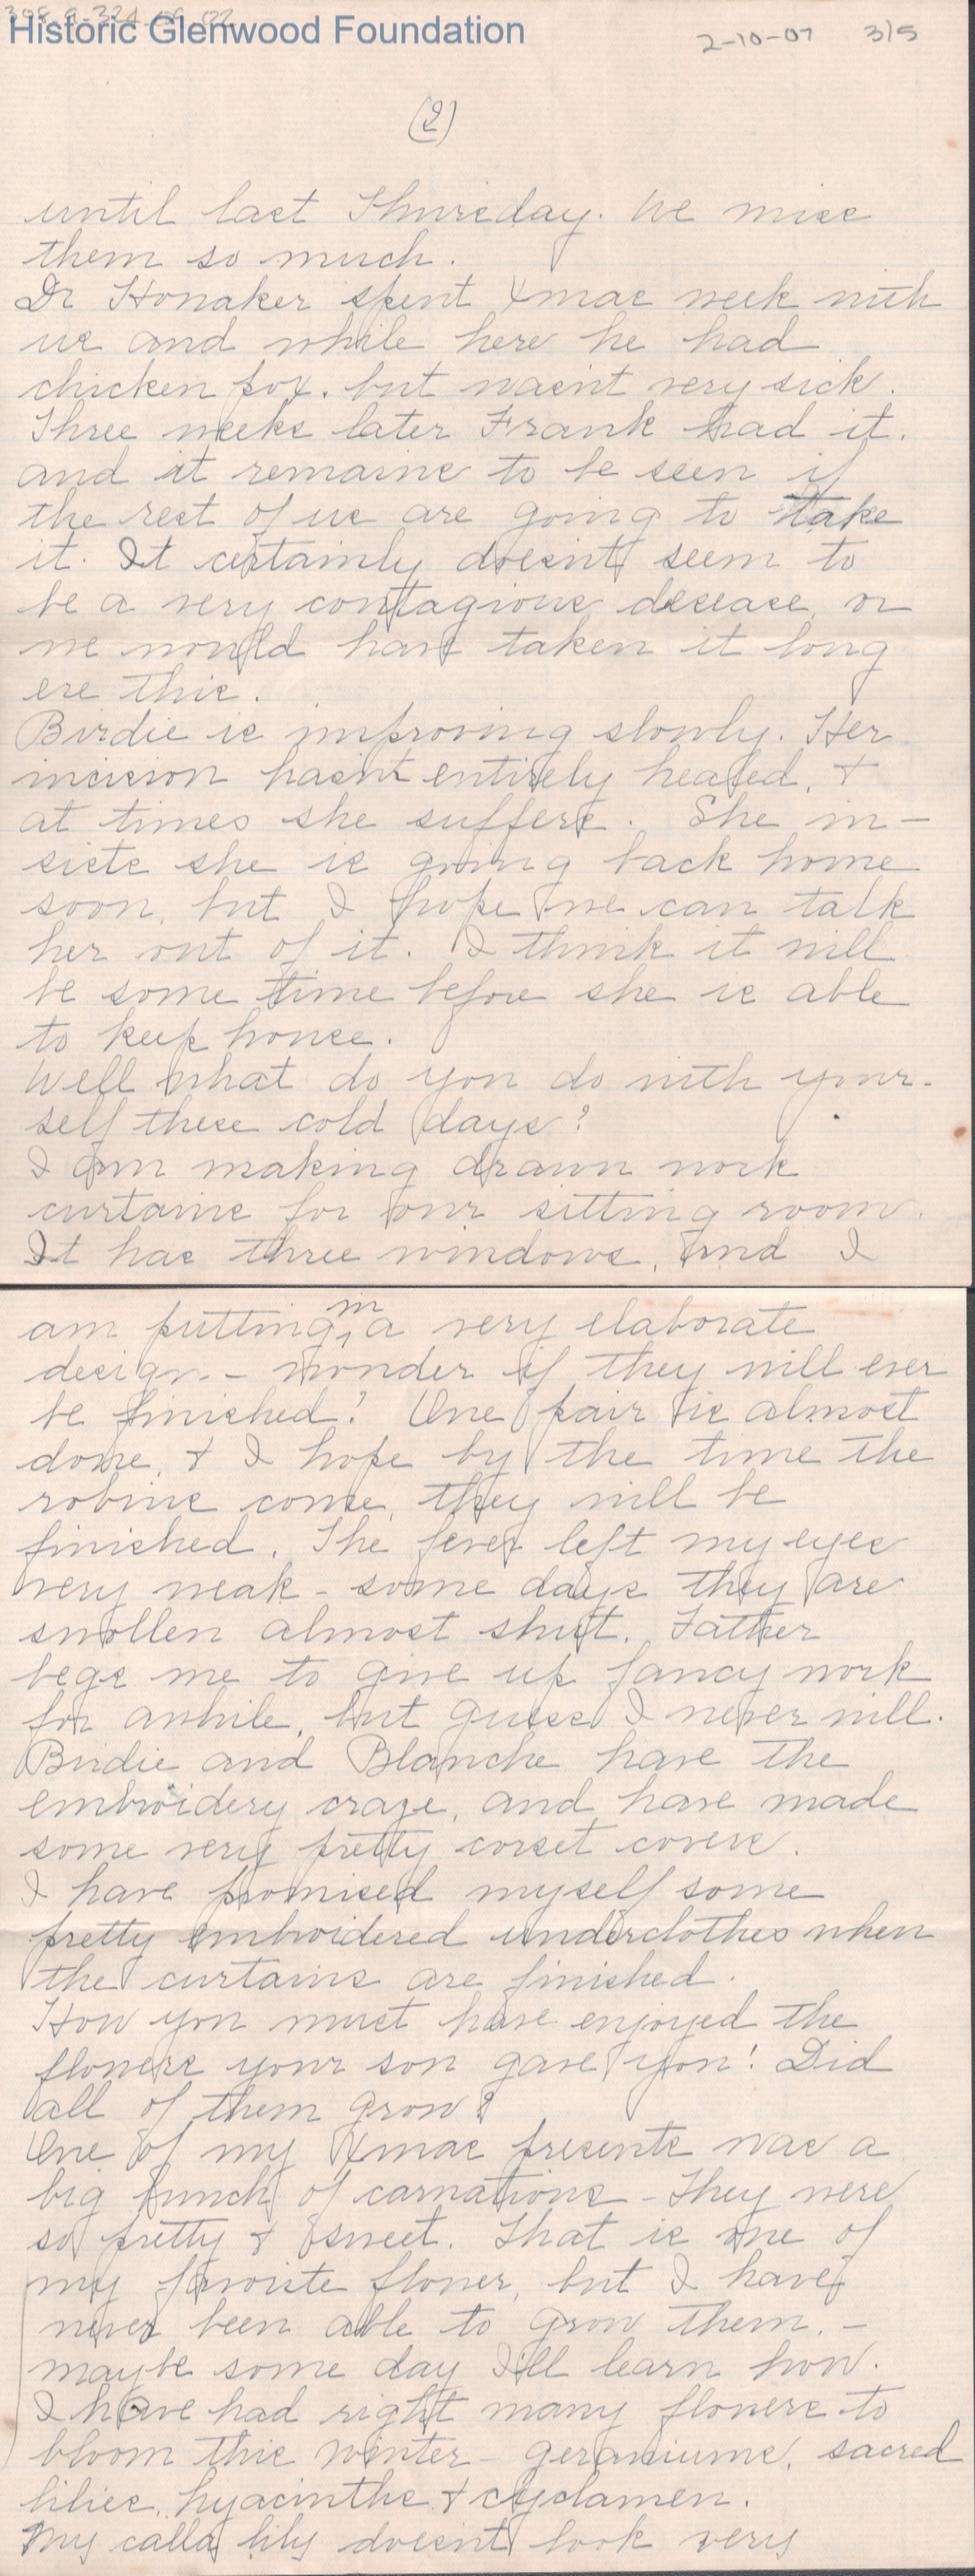 308.9-324.09.02
Historic Glenwood Foundation
2-10-07 3/5
(2)
until last Thursday. We miss
them so much.
Dr Honaker spent Xmas week with
us and while here he had
chicken pox. but wasn't very sick.
Three weeks later Frank had it.
and it remains to be seen if
the rest of us are going to take
it. It certainly doesn't seem to
be a very contagious desease, or
we would have taken it long
ere this.
Birdie is improving slowly. Her
incision hasn't entirely healed, +
at times she suffers. She in-
sists she is going back home
soon, but I hope we can talk
her out of it. I think it will
be some time before she is able
to keep house.
Well what do you do with your-
self these cold days?
I am making drawn work
curtains for our sitting room.
It has three windows, and I
am putting in a very elaborate
design - wonder if they will ever
be finished? One pair is almost
done, + I hope by the time the
robins come, they will be
finished. The fever left my eyes
very weak - some days they are
swollen almost shut. Father
begs me to give up fancy work
for awhile, but guess I never will.
Birdie and Blanche have the
embroidery craze, and have made
some very pretty corset covers.
I have promised myself some
pretty embroidered underclothes when
the curtains are finished.
How you must have enjoyed the
flowers your son gave you! Did
all of them grow?
One of my Xmas presents was a
big bunch of carnations - They were
so pretty + sweet. That is one of
my favorite flower, but I have
never been able to grow them. -
maybe some day I'll learn how.
I have had right many flowers to
bloom this winter - geraniums, sacred
lilies, hyacinths + cyclamen.
My calla lily doesn't look very